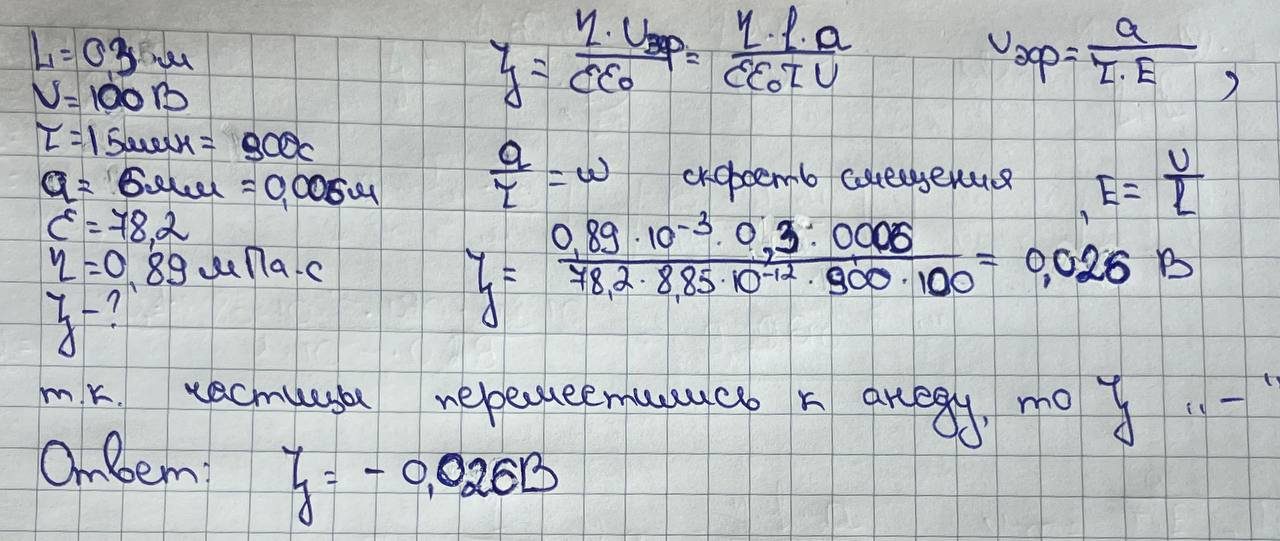 L = 0,3 м
U = 100 В
τ = 15 мин = 900 с
a = 6 мм = 0,006 м
ε = 78,2
η = 0,89 мПа·с
ζ - ?
ζ = η · υэф. / εε₀ = η · l · a / εε₀τU
υэф = a / τ · E ,
a / τ = ω скорость смещения , E = U / L
ζ = 0,89 · 10⁻³ · 0,3 · 0,006 / 78,2 · 8,85 · 10⁻¹² · 900 · 100 = 0,026 В
т.к. частицы переместились к аноду, то ζ „–“
Ответ: ζ = - 0,026 В